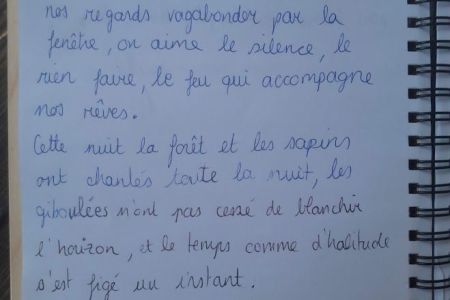 nos regards vagabonder par la
fenêtre, on aime le silence, le
rien faire, le feu qui accompagne
nos rêves.
Cette nuit la forêt et les sapins
ont chantés toute la nuit, les
giboulées n'ont pas cessé de blanchir
l'horizon, et le temps comme d'habitude
s'est figé un instant.